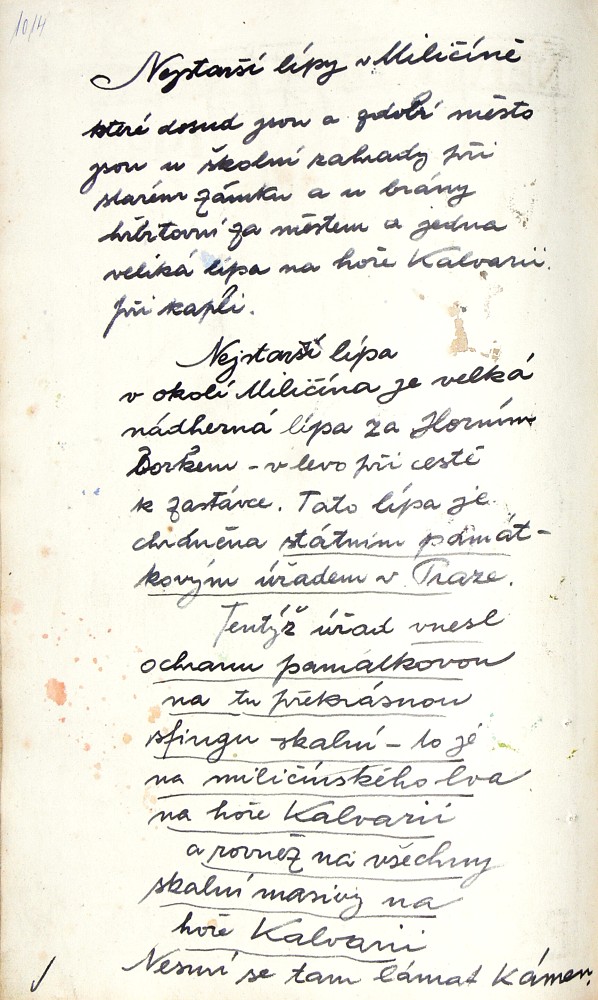 10/4
Nejstarší lípy v Miličíně
které dosud jsou a zdobí město
jsou u školní zahrady při
starém zámku a u brány
hřbitovní za městem a jedna
veliká lípa na hoře Kalvarii
při kapli.
Nejstarší lípa
v okolí Miličína je velká
nádherná lípa za Horním
Borkem - v levo při cestě
k zastávce. Tato lípa je
chráněna státním památ-
kovým úřadem v Praze.
Tentýž úřad vnesl
ochranu památkovou
na tu překrásnou
sfingu skalní - to je
na miličínského lva
na hoře Kalvarii
a rovněž na všechny
skalní masivy na
hoře Kalvarii
Nesmí se tam lámat kámen.